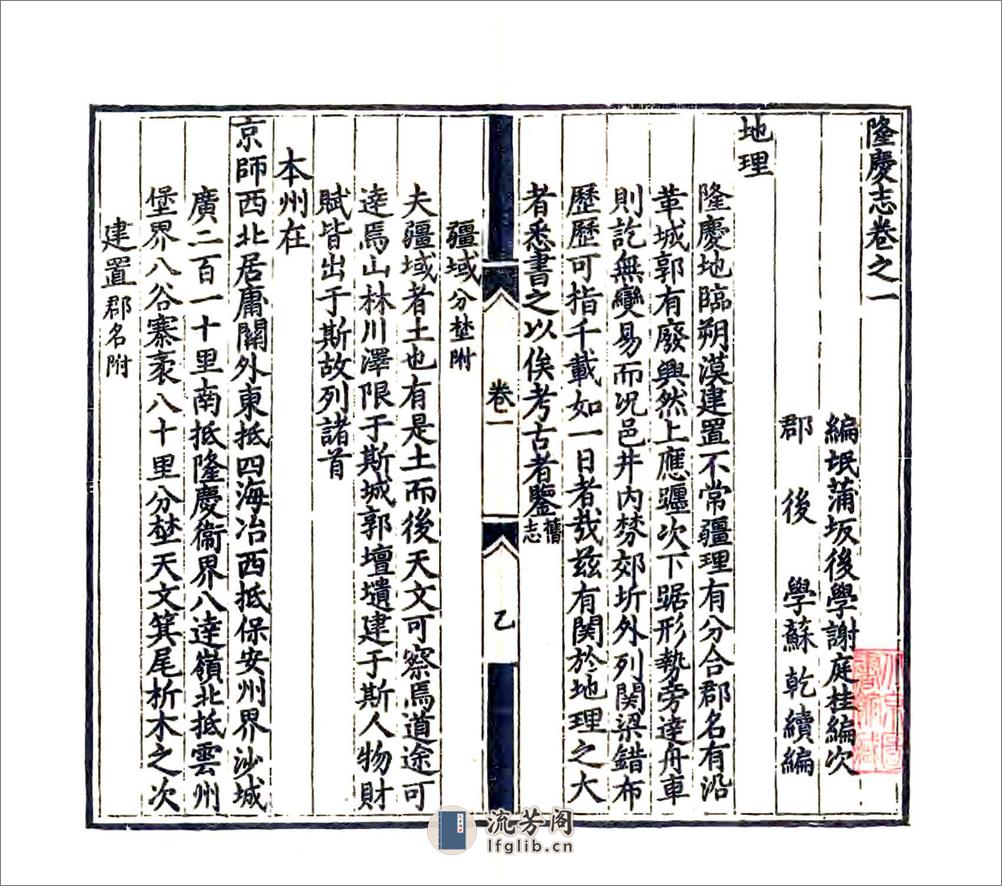 隆慶志卷之一
編氓蒲坂後學謝庭桂編次
郡後學蘇乾續編
地理
隆慶地臨朔漠建置不常疆理有分合郡名有沿
革城郭有廢興然上應躔次下踞形勢旁達舟車
則訖無變易而况邑井內棼郊圻外列関梁錯布
歷歷可指千載如一日者哉兹有関於地理之大
者悉書之以俟考古者鑒舊志
卷一
乙
疆域分埜附
夫疆域者土也有是土而後天文可察焉道途可
逹焉山林川澤限于斯城郭壇壝建于斯人物財
賦皆出于斯故列諸首
本州在
京師西北居庸關外東抵四海冶西抵保安州界沙城
廣二百一十里南抵隆慶衞界八逹嶺北抵雲州
堡界八谷寨袤八十里分埜天文箕尾析木之次
建置郡名附
流芳阁
lfglib.cn